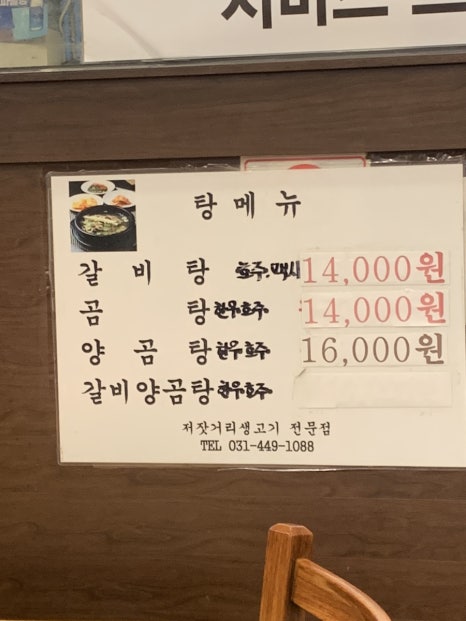 탕 메 뉴
갈 비 탕 호주.멕시 14,000원
곰 탕 한우호주 14,000원
양 곰 탕 한우호주 16,000원
갈비양곰탕 한우호주
저잣거리생고기 전문점
TEL 031-449-1088